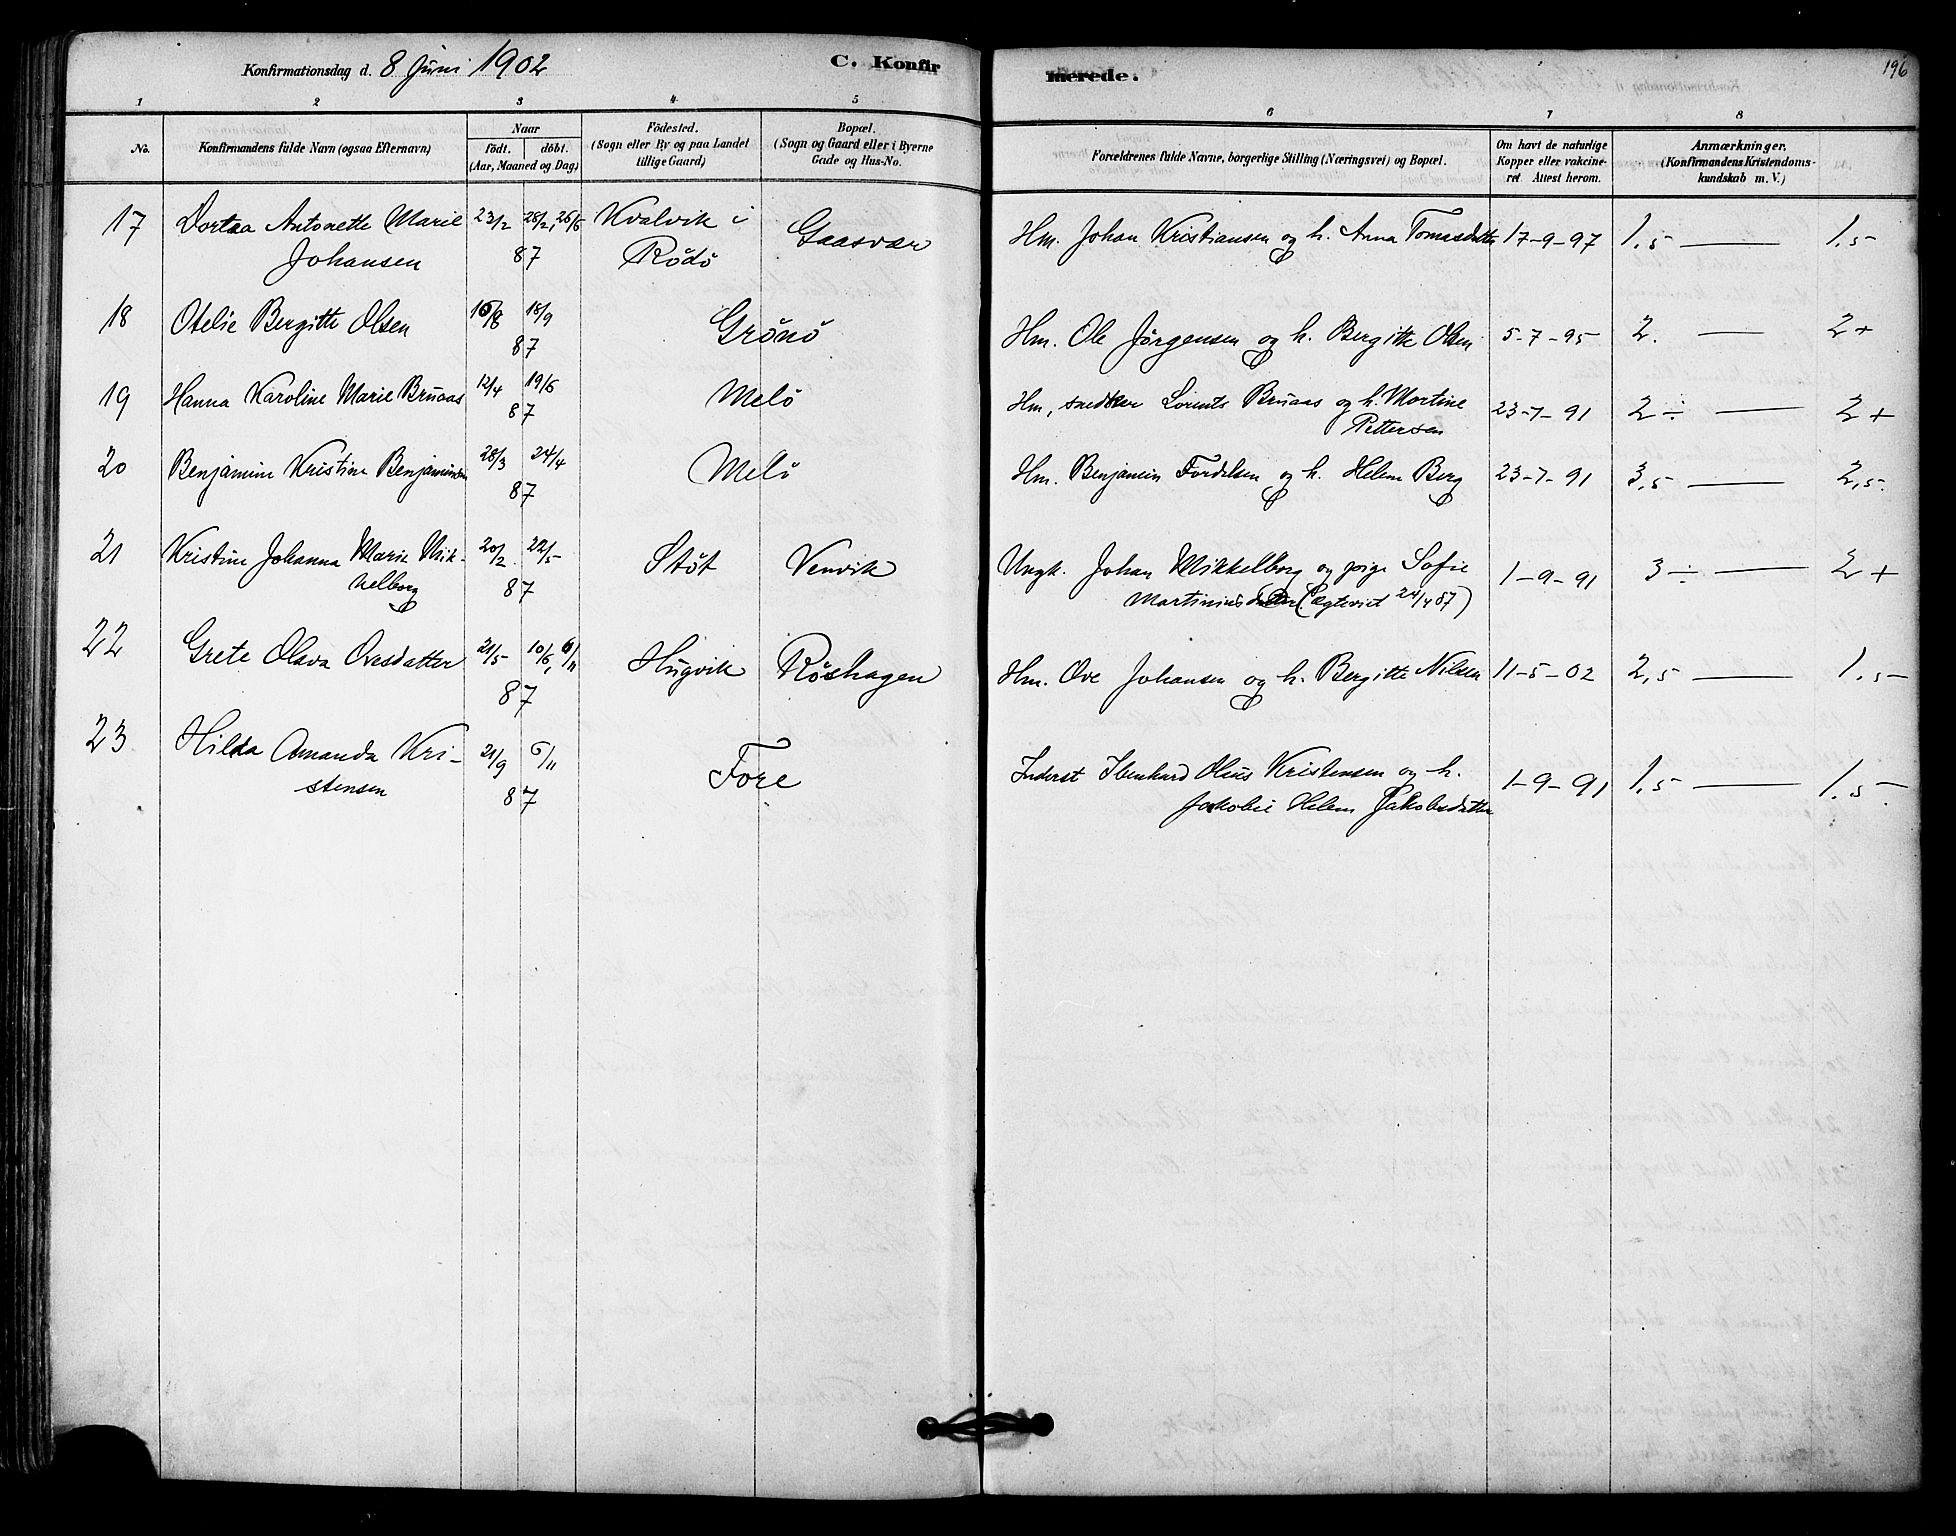 Konfirmationsdag d. 8 Juni 1902
C. Konfirmerede.
196
1 2 3 4 5 6 7 8
No.
Konfirmandens fulde Navn (ogsaa Efternavn)
Naar
født. døbt.
(Aar, Maaned og Dag)
Fødested.
(Sogn eller By og paa Landet
tillige Gaard)
Bopæl.
(Sogn og Gaard eller i Byerne
Gade og Hus-No.
Forældrenes fulde Navne, borgerlige Stilling (Næringsvei) og Bopæl.
Om havt de naturlige
Kopper eller vakcine-
ret. Attest herom.
Anmærkninger.
(Konfirmandens Kristendoms-
kundskab m. V.)
17 Dortaa Antonette Marie 23/2 28/2, 26/5 Kvalvik i Gaasvær Hm. Johan Kristiansen og h. Anna Tomasdatter 17-9-97 1,5 — 1,5
Johansen 87 Rödö
18 Otelie Bergitte Olsen 16/8 18/9 Grönö Hm. Ole Jörgensen og h. Bergitte Olsen 5-7-95 2. — 2+
87
19 Hanna Karoline Marie Bruaas 12/4 19/6 Melö Hm, snedker Lorents Bruaas og h. Martine 23-7-91 2÷ — 2+
87 Pettersen
20 Benjamine Kristine Benjaminsen 28/3 24/4 Melö Hm. Benjamin Fordelsen og h. Helene Berg 23-7-91 3,5 — 2,5.
87
21 Kristine Johanna Marie Mik- 20/2 22/5 Stöt Venvik Ungk. Johan Mikkelborg og pige Sofie 1-9-91 3÷ — 2+
kelborg 87 Martiniusdatter (Ægteviet 24/4 87)
22 Grete Olava Ovesdatter 21/5 10/6, 6/11 Hugvik Röshagen Hm. Ove Johansen og h. Bergitte Nilsen 11-5-02 2,5 — 1,5
87
23 Hilda Amanda Kri- 21/9 6/11 Fore Inderst Ibenhard Olius Kristensen og h. 1-9-91 1,5 — 1,5.
stensen 87 Jakobie Helene Jakobsdatter